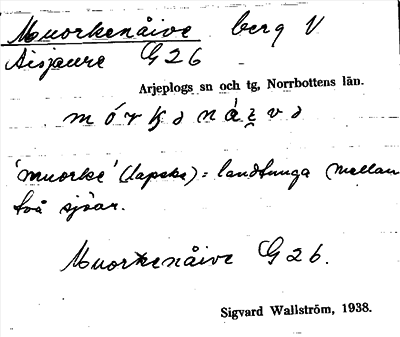 Muorkenåive berg V
Aisjaure G 26
Arjeplogs sn och tg, Norrbottens län.
'muorke' (lapska) = landtunga mellan
två sjöar.
Muorkenåive G 26.
Sigvard Wallström, 1938.